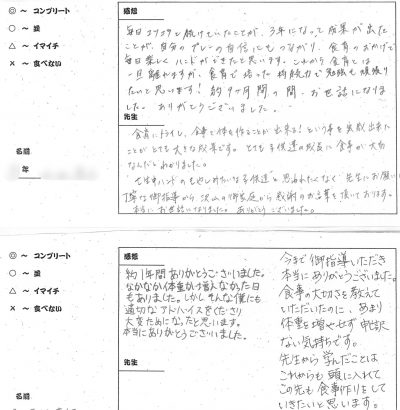 ◎ ～ コンプリート
○ ～ 選
△ ～ イマイチ
× ～ 食べない
名前
年
感想
毎日コツコツと続けていたことが、3年になって成果が出た
ことが、自分のプレーの自信にもつながり、食育のおかげで
毎日楽しくハンドができたと思います。これから食育とは
一旦離れますが、食育で培った持続力で勉強も頑張り
たいと思います！約9ヶ月の間、お世話になりま
した。ありがとうございました。
先生
食育にトライし、食事で体を作ることが出来る！という事を実感出来た
ことがとても大きな収穫です。とても子供達の成長に食事が大切
なんだとわかりました。
丁寧な御指導から沢山の御家庭から感謝のお言葉を頂いております。
本当にお世話になりました。ありがとうございました。
◎ ～ コンプリート
○ ～ 選
△ ～ イマイチ
× ～ 食べない
名前
感想
約1年間ありがとうございました。
なかなか体重が増えなかった日
もありました。しかしそんな僕にも
適切なアドバイスをくださり
大変ためになったと思います。
本当にありがとうございました。
先生
今まで御指導いただき
本当にありがとうございました。
食事の大切さを教えて
いただいたのに、あまり
体重を増やせず申訳
ない気持ちです。
先生から学んだことは
これからも頭に入れて
この先も食事作りをして
いきたいと思います。